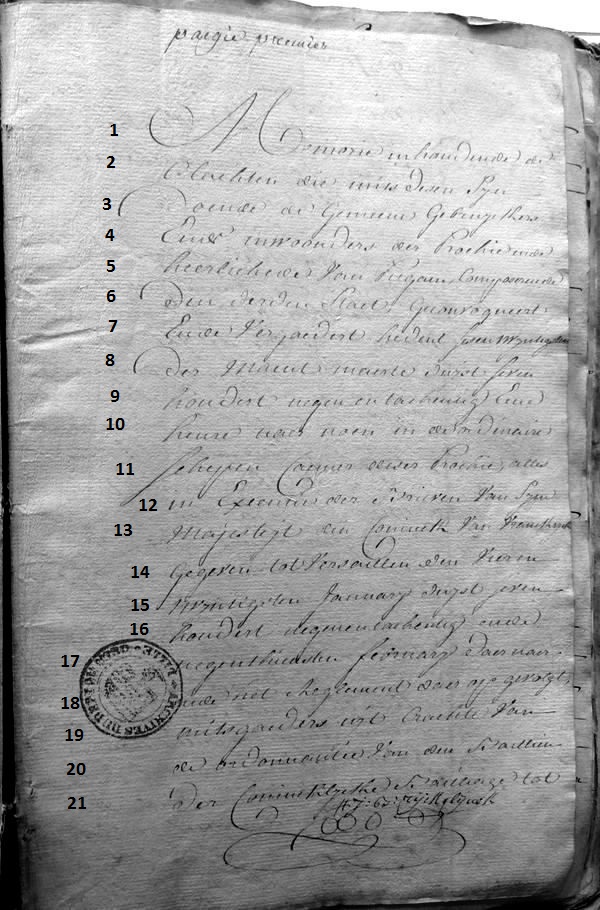 pagie premier
1 Memorie inhoudende de
2 Clachten die mits desen Syn
3 Doende de Gemeene Gebruyckers
4 Ende inwoonders der Prochie ende
5 heerlichede Van Pitgam, Composerende
6 Den derden Staet, Geconvoqueert
7 Ende Vergaedert heden sesentwyntigsten
8 der Maent maerte duyst seven
9 hondert negen en tachentig Eene
10 heure naer noen in de ordinaire
11 schepen Camer deser Prochie, alles
12 in Executie der Brieven Van Syn
13 Majesteyt den Coninck Van Vranckryck
14 Gegeven tot Versaillen den Vieren
15 twyntigsten January duyst seven
16 hondert negenentachentig ende
17 negenthiensten february daer naer
18 ende het Reglement daer op gevolgt,
19 mitsgaders uit Crachte Van
20 de ordonnantie Van den Bailliu
21 der Coninklycke Bailliage tot
ARCHIVES DU DEPT DU NORD